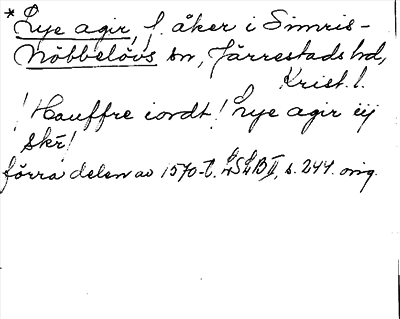 * Lye agir, f. åker i Simris-
Nöbbelövs sn, Järrestads hd,
Krist. l.
! Hauffre iordt! Lye agir iij
skr!
förra delen av 1570-t. LSLB II, s. 244. orig.